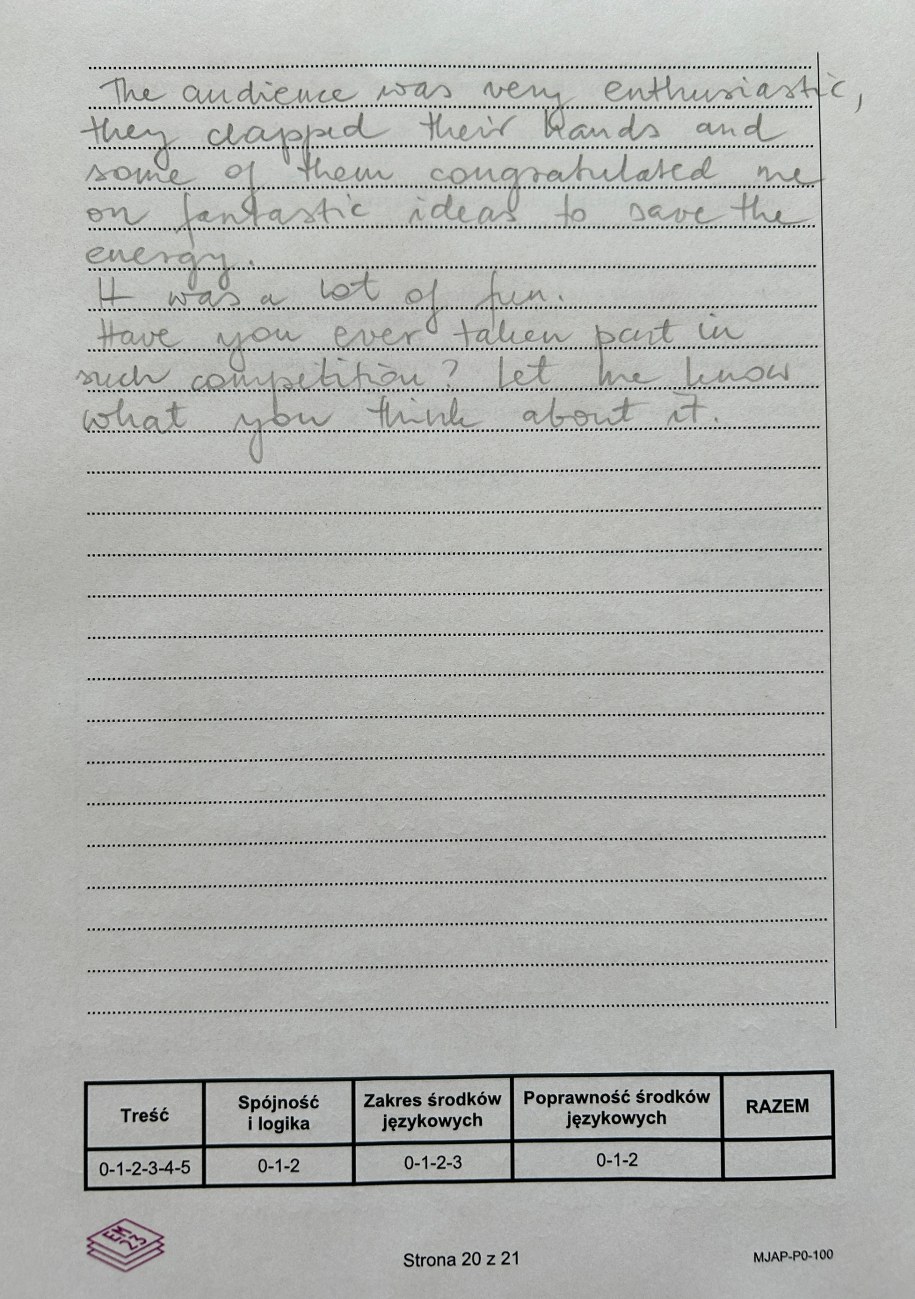 The audience was very enthusiastic,
they clapped their hands and
some of them congratulated me
on fantastic ideas to save the
energy.
It was a lot of fun.
Have you ever taken part in
such competition? Let me know
what you think about it.
Treść
Spójność
i logika
Zakres środków
językowych
Poprawność środków
językowych
RAZEM
0-1-2-3-4-5
0-1-2
0-1-2-3
0-1-2
EM
23
Strona 20 z 21
MJAP-P0-100